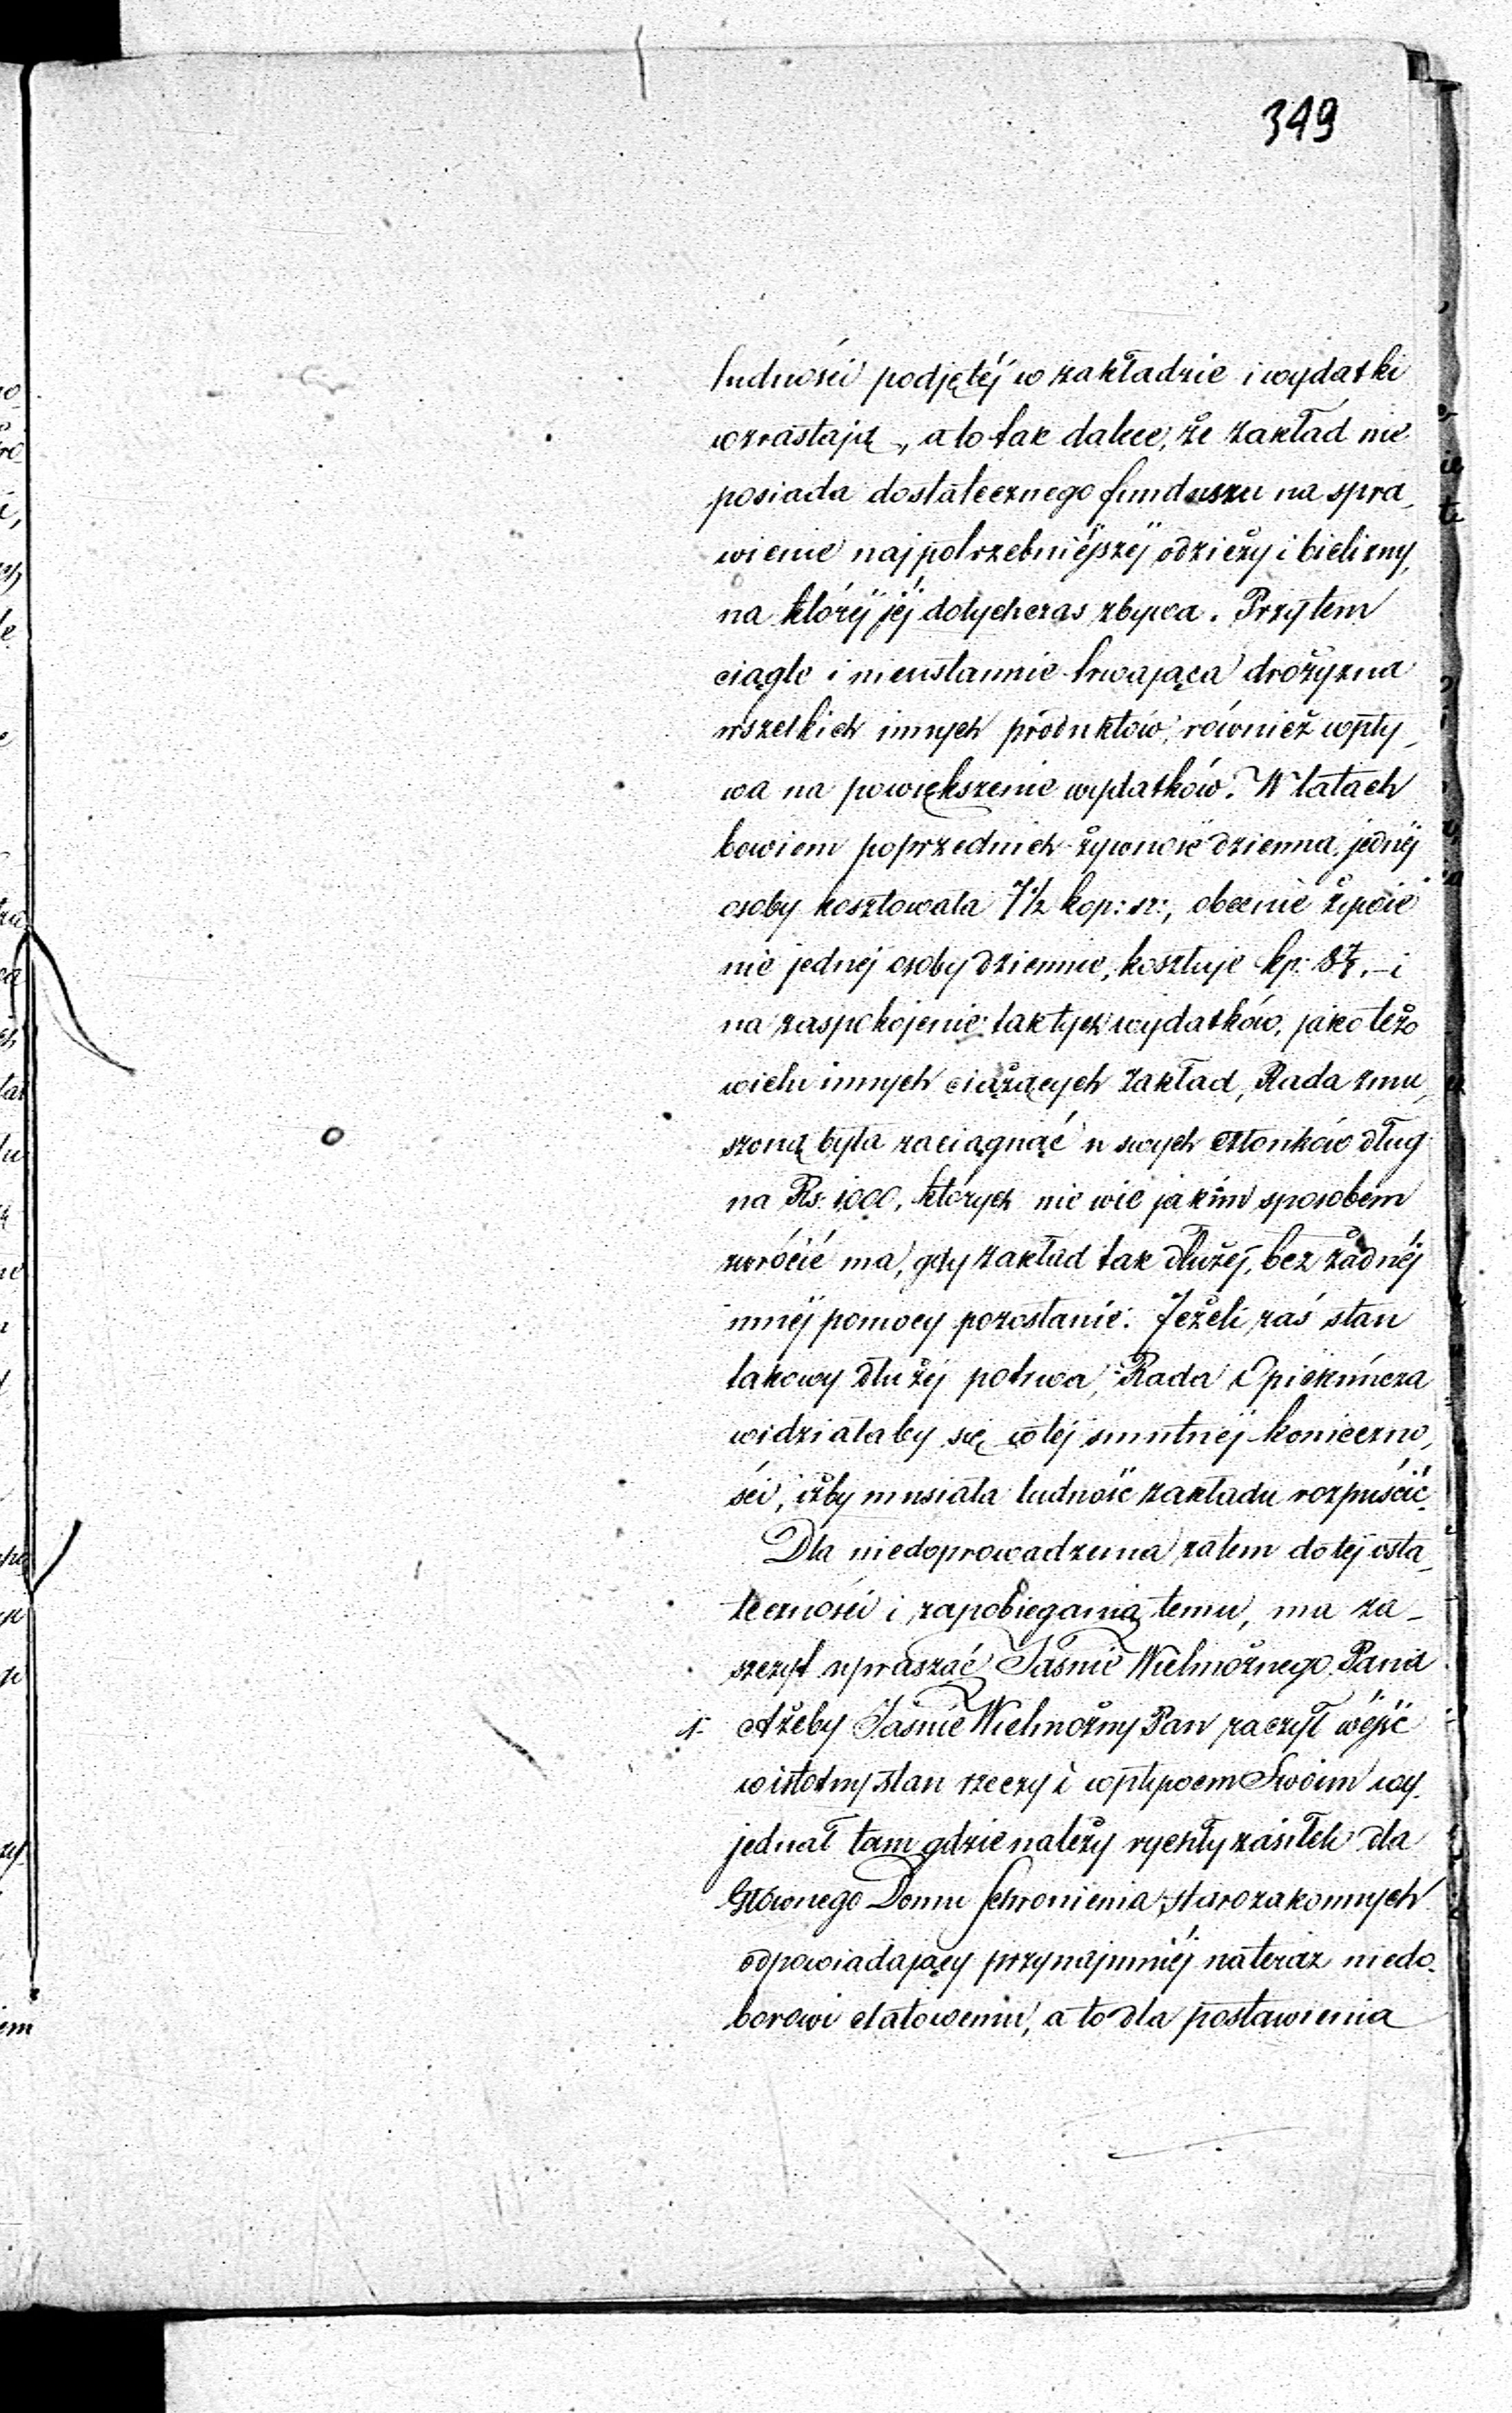 349
ludności podjętéj w zakładzie i wydatki
wzrastają, a to tak dalece, że zakład nie
posiada dostatecznego funduszu na spra-
wienie najpotrzebniéjszéj odzieży i bielizny,
na któréj jéj dotychczas zbywa. Przytem
ciągle i nieustannie trwająca drożyzna
wszelkich innych produktów, również wpły-
wa na powiększenie wydatków. W latach
bowiem poprzednich żywność dzienna jednéj
osoby kosztowała 7½ kop: sr:, obecnie żywie
nie jednéj osoby dziennie, kosztuje kp: i
na zaspokojenie taktych wydatków, jako też
wielu innych ciążących zakład, Rada zmu-
szoną była zaciągnąć u swych członków dług
na Rs. 1000, których nie wie jakim sposobem
zwrócić ma, gdy zakład tak dłużéj, bez żadnéj
innéj pomocy pozostanie. Jeżeli zaś stan
takowy dłużéj potrwa, Rada Opiekuńcza
widziałaby się w téj smutnéj konieczno-
ści, iżby musiała ludność zakładu rozpuścić.
Dla niedoprowadzenia zatem do téj osta-
teczności i zapobiegania temu, ma za-
szczyt upraszać Jaśnie Wielmożnego Pana
Ażeby Jaśnie Wielmożny Pan raczył wéjść
w istotny stan rzeczy i wpływem Swoim wy-
jednał tam gdzie należy rychły zasiłek dla
Głównego Domu Schronienia starozakonnych
odpowiadający przynajmniéj nateraz niedo-
borowi etatowemu, a to dla postawienia